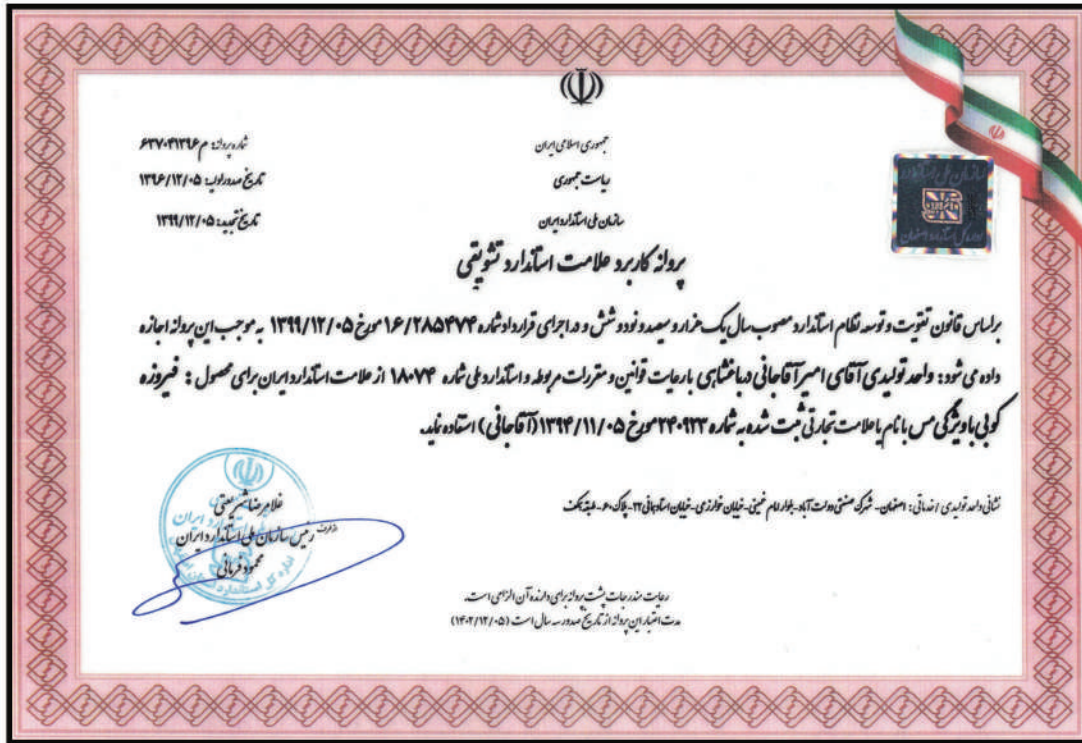 جمهوری اسلامی ایران
ریاست جمهوری
سازمان ملی استاندارد ایران
شماره پروانه: م ۶۳۷۰۴۱۳۹۶
تاریخ صدور اولیه: ۱۳۹۶/۱۲/۰۵
تاریخ تجدید: ۱۳۹۹/۱۲/۰۵
پروانه کاربرد علامت استاندارد تشویقی
براساس قانون تقویت و توسعه نظام استاندارد مصوب سال یک هزار و سیصد و نود و شش و در اجرای قرارداد شماره ۱۶/۲۸۵۴۷۴ مورخ ۱۳۹۹/۱۲/۰۵ به موجب این پروانه اجازه
داده می شود: واحد تولیدی آقای امیر آقاجانی درباغشاهی با رعایت قوانین و مقررات مربوطه و استاندارد ملی شماره ۱۸۰۷۴ از علامت استاندارد ایران برای محصول : فیروزه
کوبی با ویژگی مس با نام یا علامت تجارتی ثبت شده به شماره ۲۴۰۹۳۳ مورخ ۱۳۹۴/۱۱/۰۵ (آقاجانی) استفاده نماید.
نشانی واحد تولیدی / خدماتی : اصفهان - شهرک صنعتی دولت آباد - بلوار امام خمینی - خیابان خوارزمی - خیابان ۲۲ - پلاک ۶۰ - طبقه همکف
غلامرضا شریعتی
رئیس سازمان ملی استاندارد ایران
از طرف
محمود فرمانی
رعایت مندرجات پشت پروانه برای دارنده آن الزامی است.
مدت اعتبار این پروانه از تاریخ صدور سه سال است (۱۴۰۲/۱۲/۰۵)